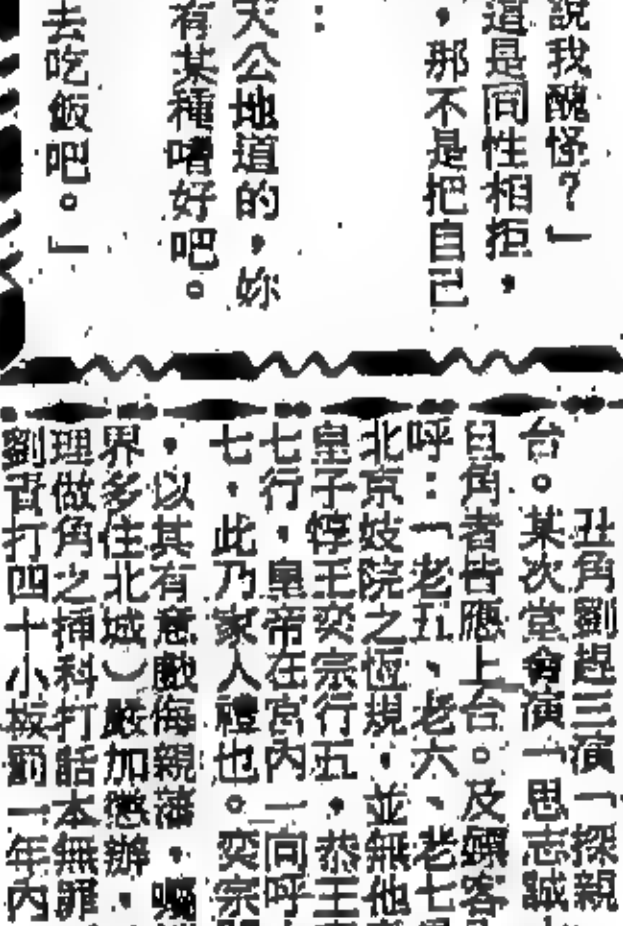 說我醜怪?」
這是同性相拒,
,那不是把自己
:
天公地道的,妳
有某種嗜好吧。
去吃飯吧。』
丑角劉趕三演「探親
台。某次堂會演「思志誠
旦角者皆應上台。及嫖客
呼:「老五、老六、老七
北京妓院之恆規,並無他
皇子惇王奕宗行五,恭王
七行,皇帝在宮內一向呼
七,此乃家人禮也。奕宗
,以其有意戲侮親藩,囑
界多住北城)嚴加懲辦,
理做角之插科打諢本無罪
劉責打四十小板罰一年內